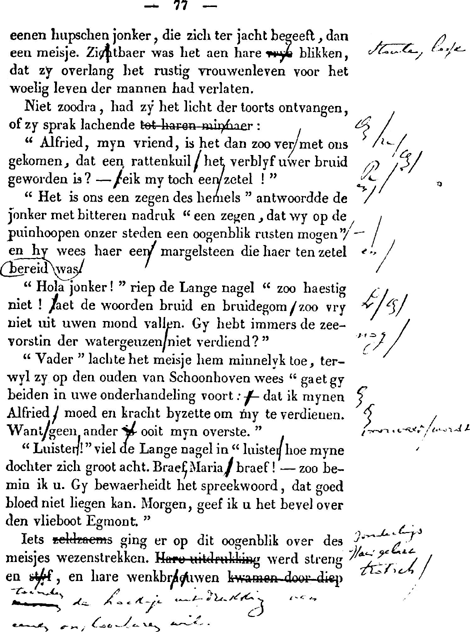 — 77 —
eenen hupschen jonker, die zich ter jacht begeeft, dan
een meisje. Zichtbaer was het aen hare blikken,
dat zy overlang het rustig vrouwenleven voor het
woelig leven der mannen had verlaten.
Niet zoodra, had zy het licht der toorts ontvangen,
of zy sprak lachende tot haren minnaer :
“ Alfried, myn vriend, is het dan zoo ver met ons
gekomen, dat een rattenkuil het verblyf uwer bruid
geworden is ? — reik my toch een zetel ! ”
“ Het is ons een zegen des hemels ” antwoordde de
jonker met bitteren nadruk “ een zegen, dat wy op de
puinhoopen onzer steden een oogenblik rusten mogen ”
en hy wees haer een margelsteen die haer ten zetel
bereid was.
“ Hola jonker ! ” riep de Lange nagel “ zoo haestig
niet ! laet de woorden bruid en bruidegom zoo vry
niet uit uwen mond vallen. Gy hebt immers de zee-
vorstin der watergeuzen niet verdiend ? ”
“ Vader ” lachte het meisje hem minnelyk toe, ter-
wyl zy op den ouden van Schoonhoven wees “ gaet gy
beiden in uwe onderhandeling voort : — dat ik mynen
Alfried moed en kracht byzette om my te verdienen.
Want geen ander ooit myn overste. ”
“ Luister ! ” viel de Lange nagel in “ luister hoe myne
dochter zich groot acht. Braef, Maria braef ! — zoo be-
min ik u. Gy bewaerheidt het spreekwoord, dat goed
bloed niet liegen kan. Morgen, geef ik u het bevel over
den vlieboot Egmont. ”
nog
wordt
Iets zeldzaems ging er op dit oogenblik over des
meisjes wezenstrekken. Hare uitdrukking werd streng
en styf, en hare wenkbrauwen kwamen door diep